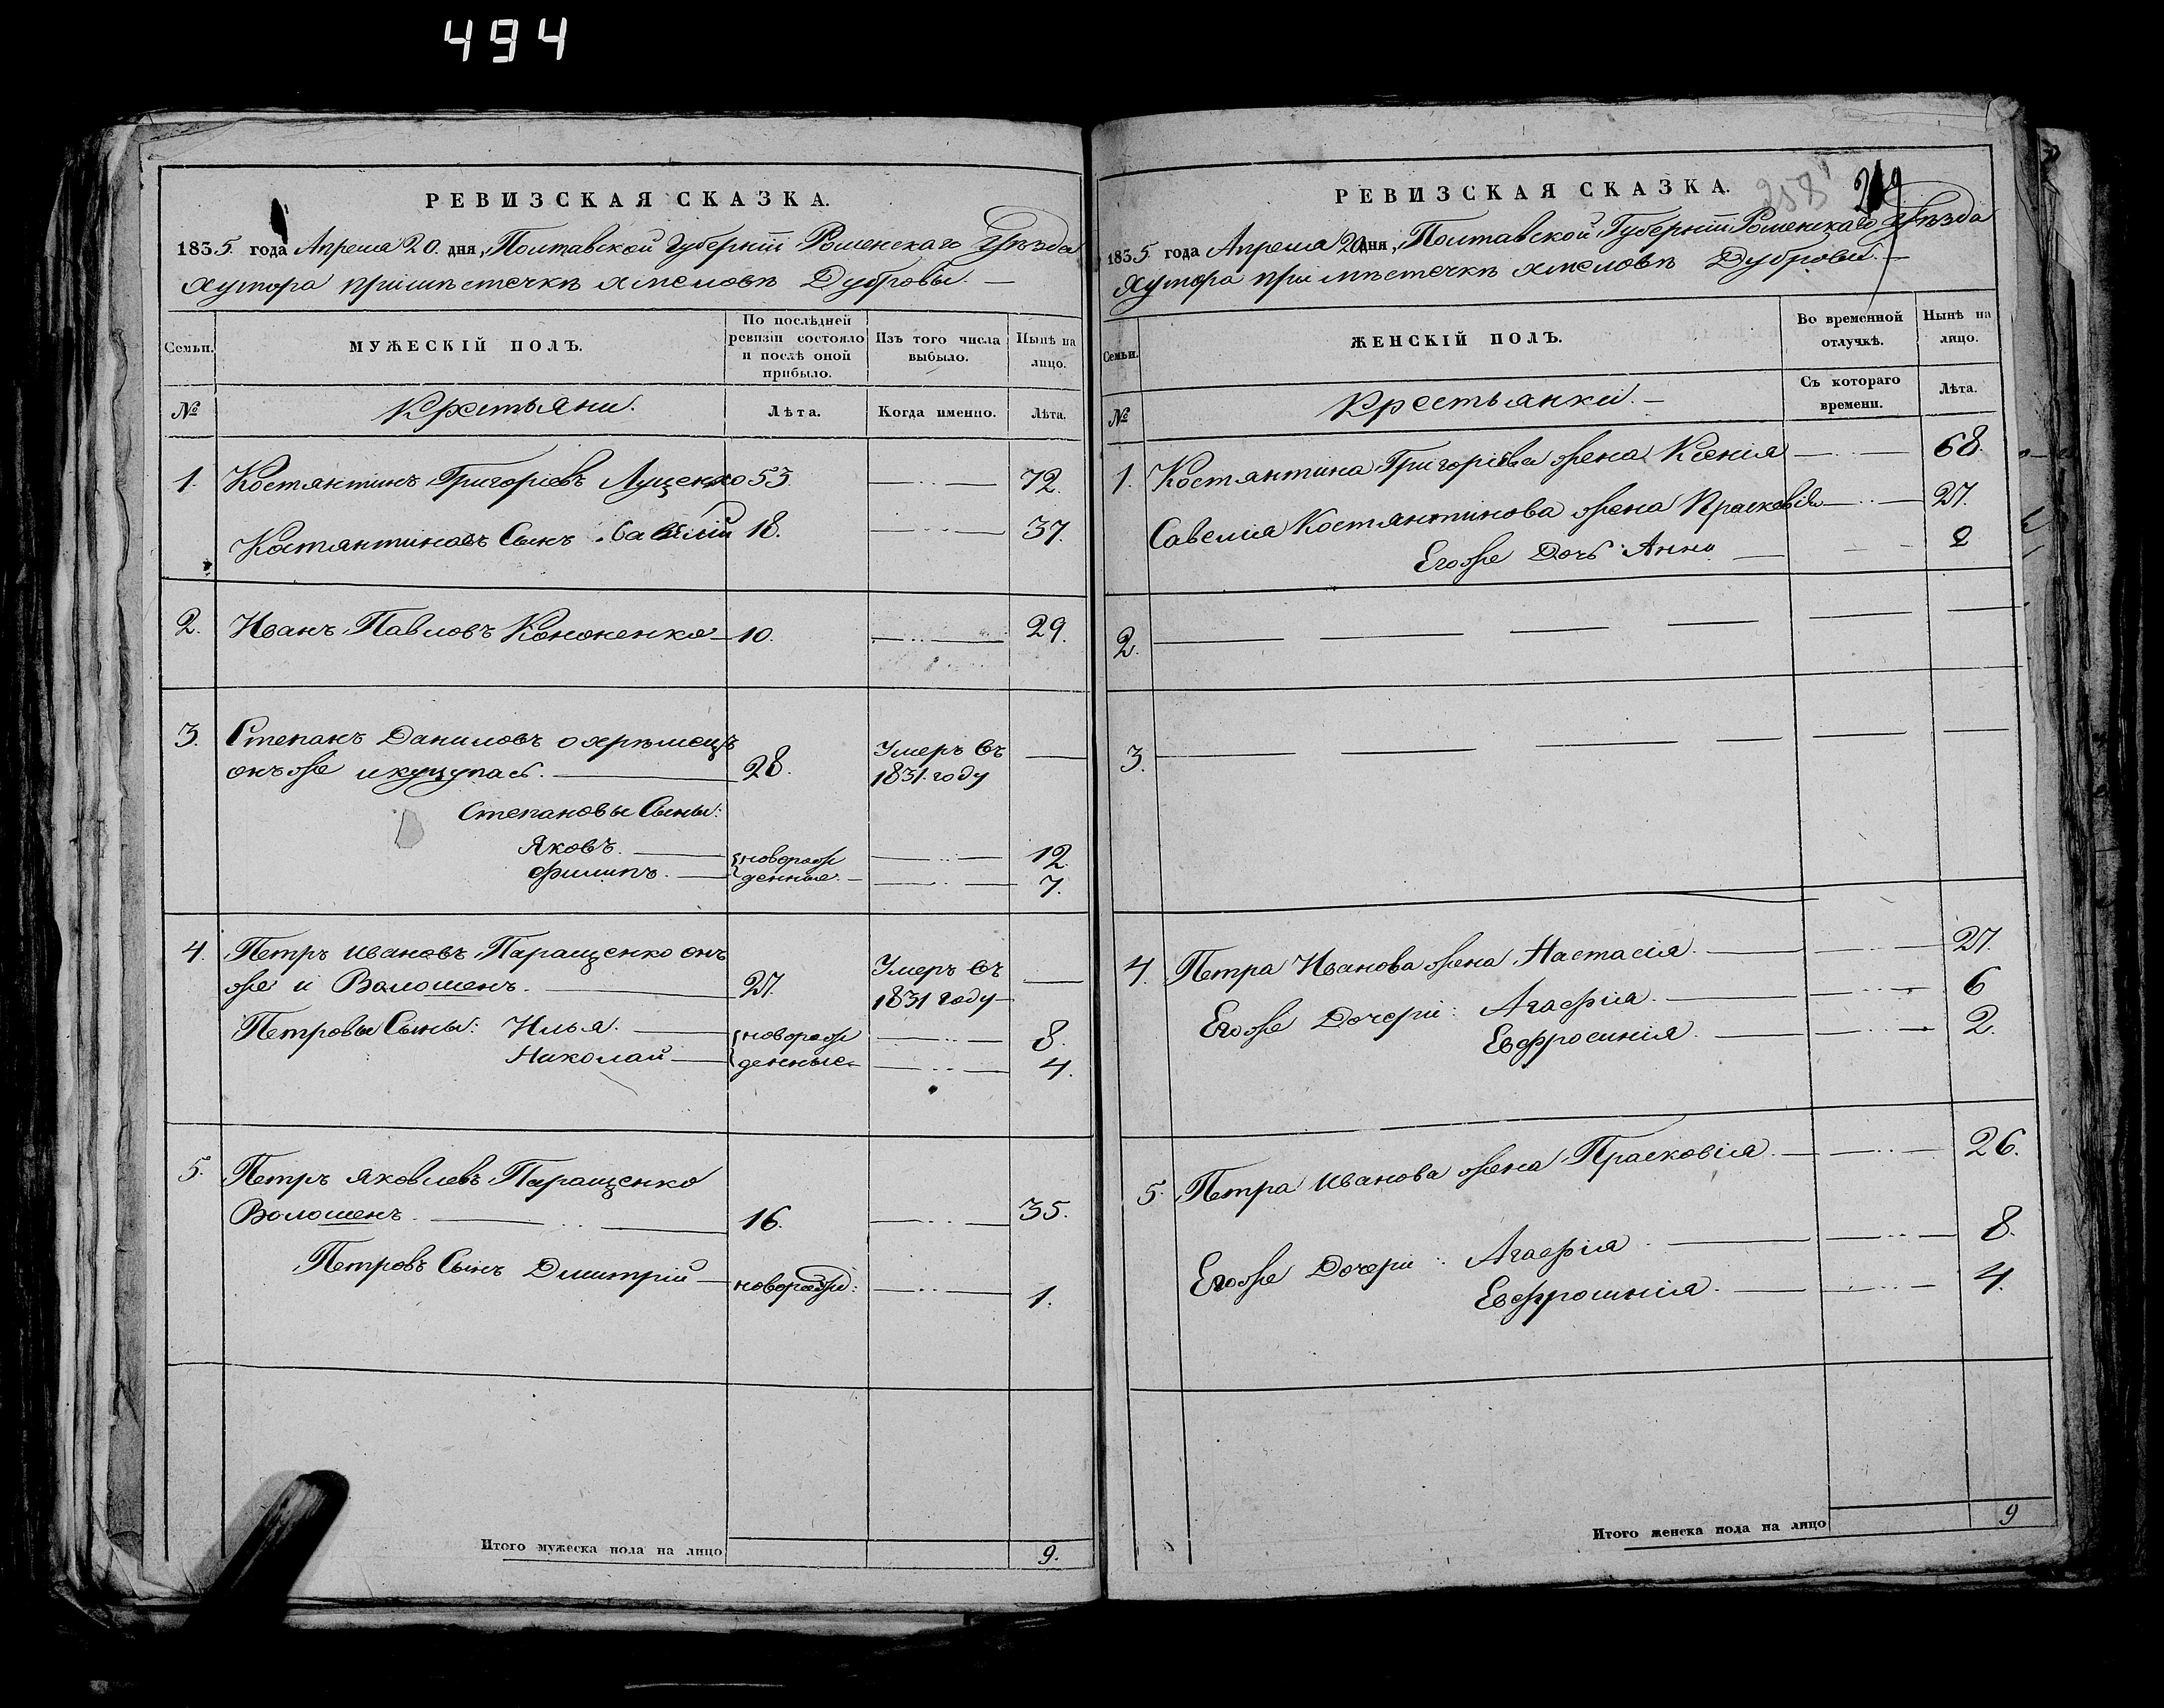 494
РЕВИЗСКАЯ СКАЗКА.
1835. года Апреля 20. дня, Полтавской Губерніи Роменскаго Уѣзда
хутора при мѣстечкѣ хмеловѣ Дубровы. —
Семьи.
МУЖЕСКІЙ ПОЛЪ.
По послѣдней ревизіи состояло и послѣ оной прибыло.
Изъ того числа выбыло.
Нынѣ на лицо.
№
Крестьяни.
Лѣта.
Когда именно.
Лѣта.
1. Костянтинъ Григоріевъ Луценко 53. 72.
Костянтиновъ Сынъ Савелій 18. 37.
2. Иванъ Павловъ Кононенко 10. 29.
3. Степанъ Даниловъ
онъ же 28. Умеръ Въ 1831. году
Степановы Сыны:
Яковъ. новорож 12.
Филипъ. денные. 7.
4. Петръ Ивановъ Паращенко онъ
же и Волошенъ. 27. Умеръ Въ 1831 году
Петровы Сыны: Илья. новорож 8.
Николай денные 4.
5. Петръ Яковлевъ Паращенко
Волошенъ. 16. 35.
Петровъ Сынъ Дмитрій новорожд: 1.
Итого мужеска пола на лицо 9.
РЕВИЗСКАЯ СКАЗКА.
258
1835 года Апреля 20 дня, Полтавской Губерніи Роменскаго Уѣзда
хутора при мѣстечкѣ хмеловѣ Дубровы. —
Семьи.
ЖЕНСКІЙ ПОЛЪ.
Во временной отлучкѣ.
Нынѣ на лицо.
№
Крестьянки. —
Съ котораго времени.
Лѣта.
1. Костянтина Григоріева жена Ксенія 68.
Савелія Костянтинова жена Прасковія 27.
Его же Дочь Анна 2
2.
3.
4. Петра Иванова жена Настасія. 27.
Его же Дочери: Агафія. 6
Евфросинія. 2.
5. Петра Иванова жена Прасковія. 26.
Его же Дочери: Агафія. 8.
Евфросинія. 4.
Итого женска пола на лицо 9